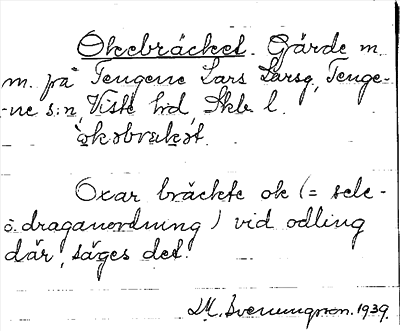 Okebräcket. Gärde m.
m. på Tengene Lars Larsg, Tenge-
-ne s:n, Viste hd, Skb. l.
òkəbrækət.
Oxar bräckte ok (= sele-
o. draganordning) vid odling
där, säges det.
M. Svenungson. 1939.